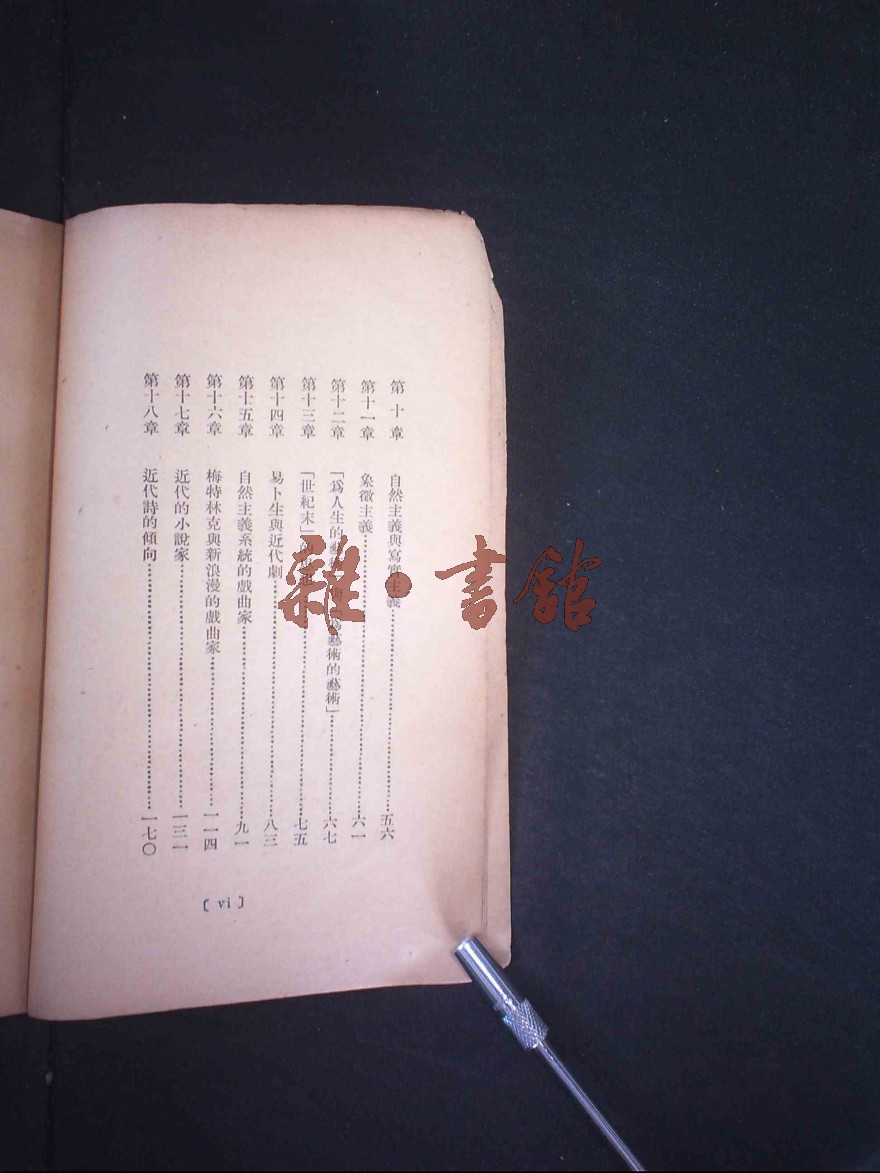 第十章 自然主義與寫實主義 五六
第十一章 象徵主義 六一
第十二章 「爲人生的藝術」與「爲藝術的藝術」 六七
第十三章 「世紀末」的 七五
第十四章 易卜生與近代劇 八三
第十五章 自然主義系統的戲曲家 九一
第十六章 梅特林克與新浪漫的戲曲家 一一四
第十七章 近代的小說家 一三一
第十八章 近代詩的傾向 一七〇
〔vi〕
雜·書館